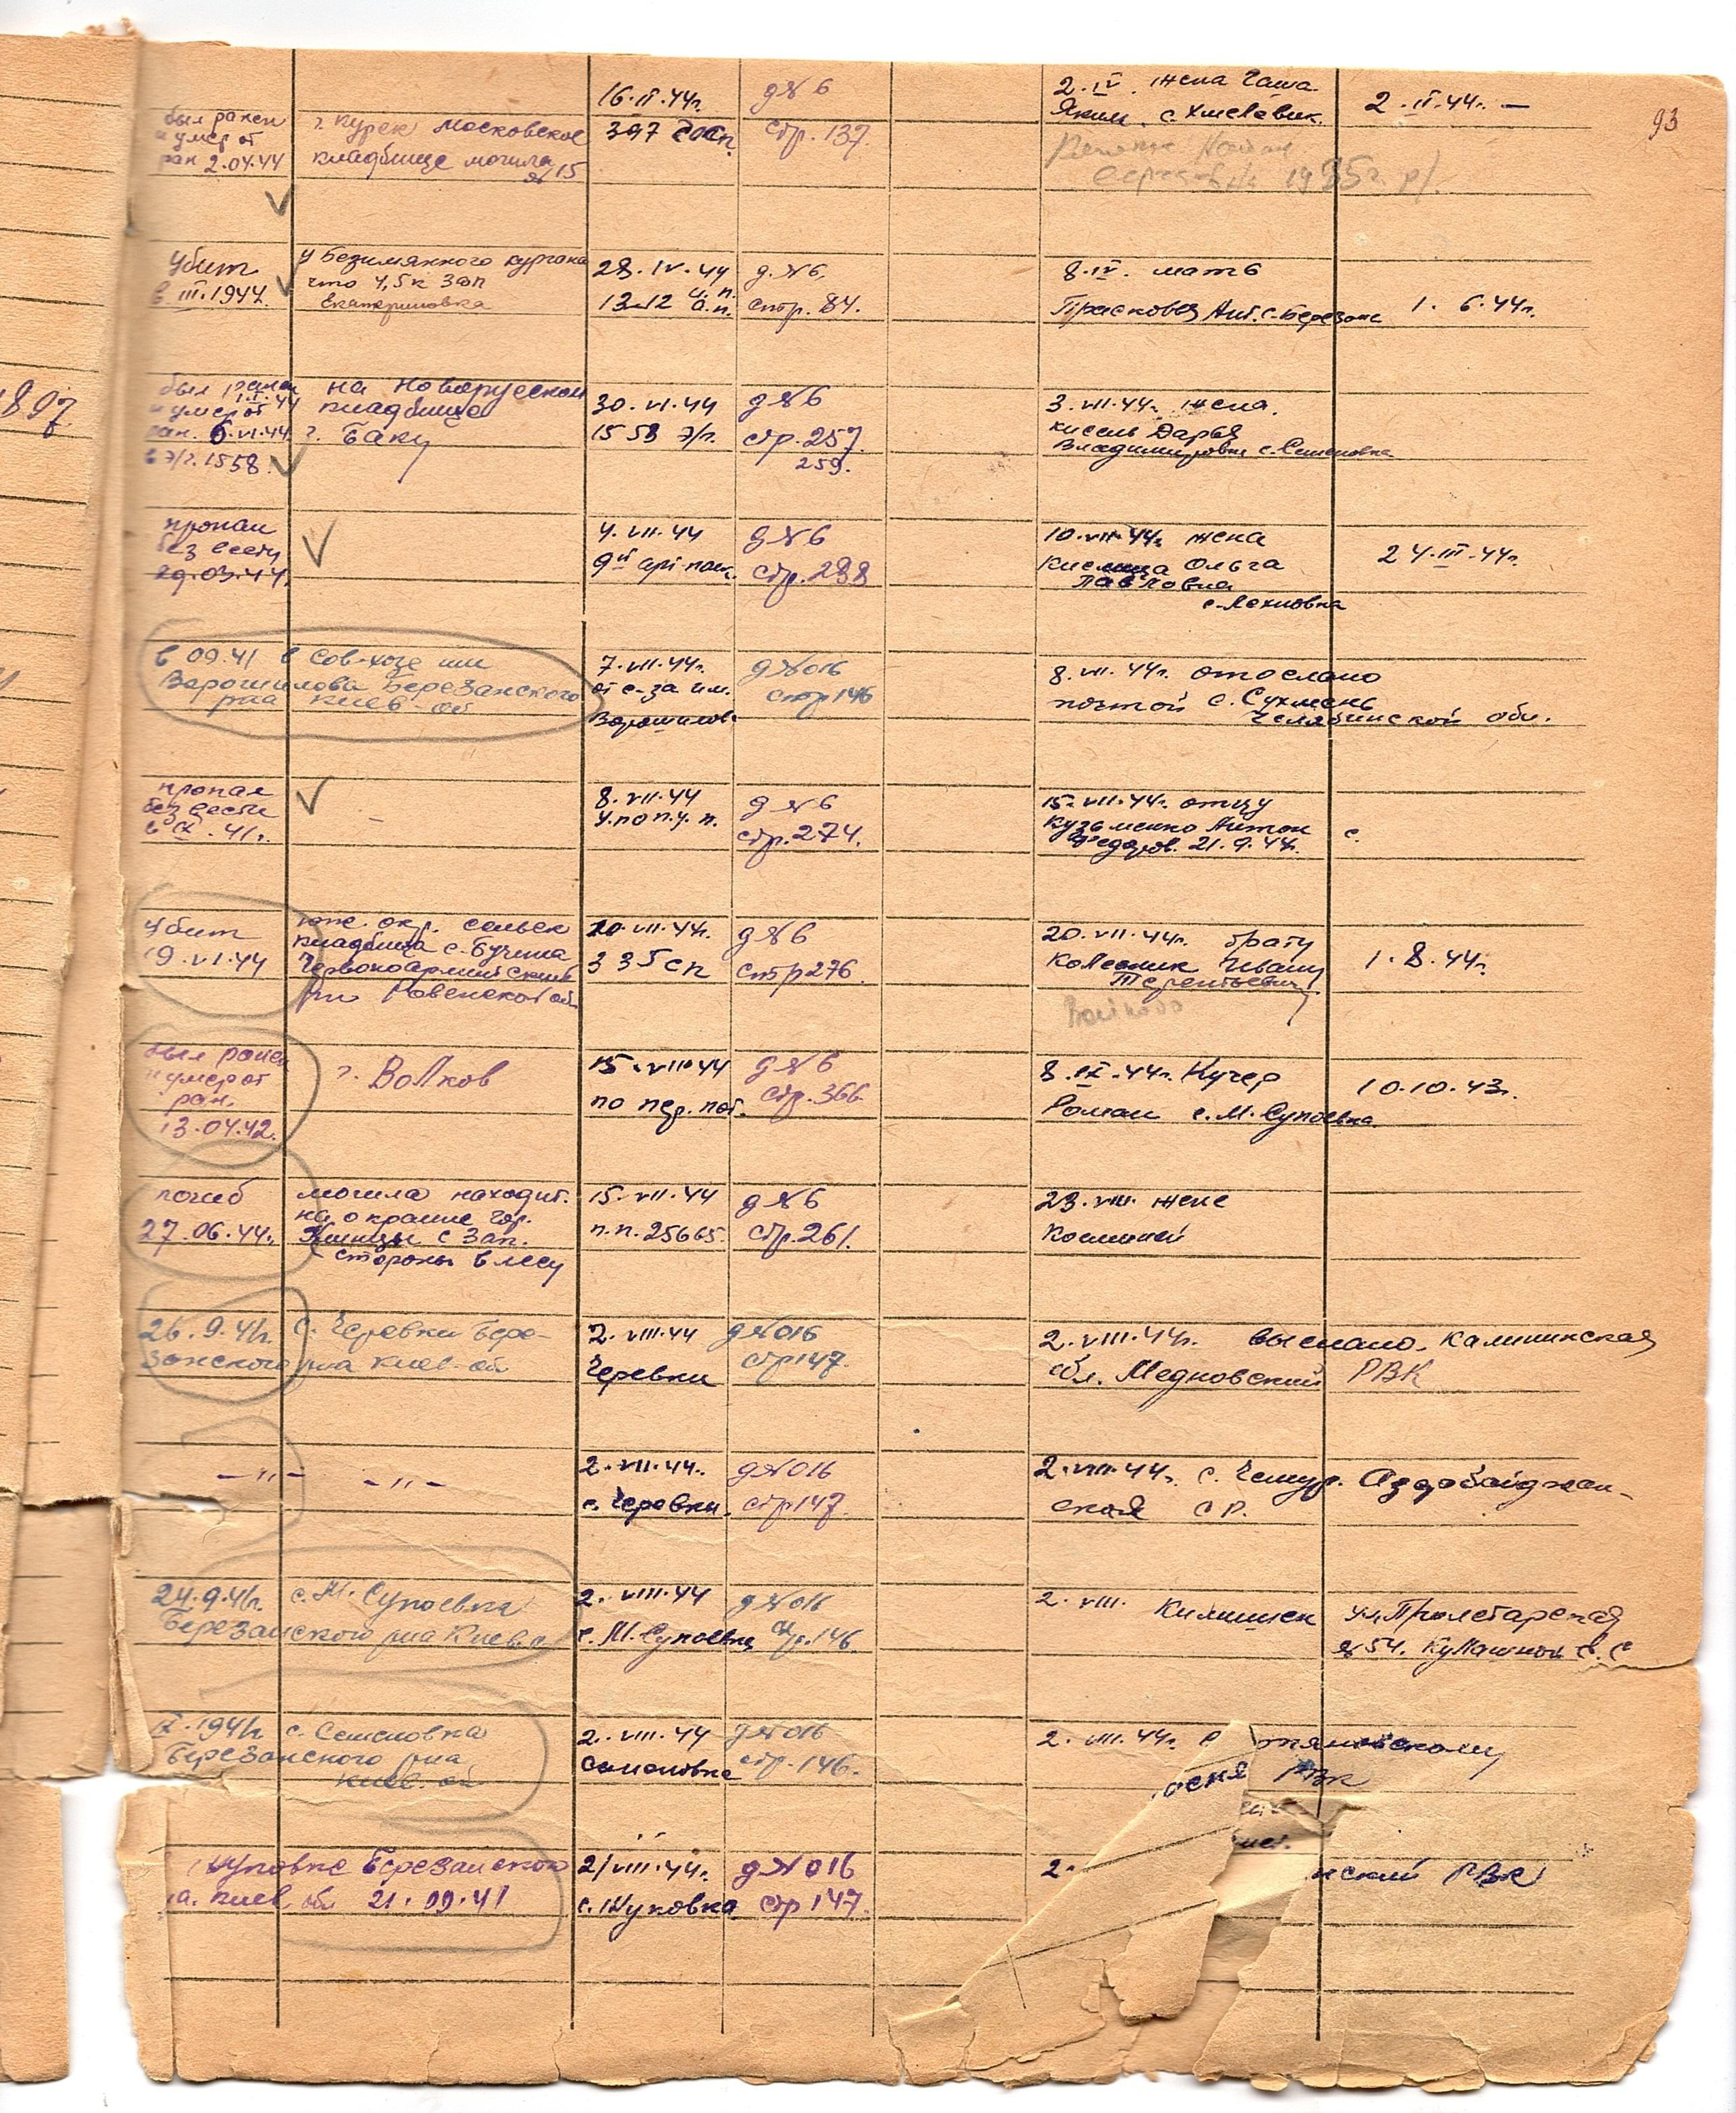 93
был ранен
и умер от
ран 2.04.44
г. Курск Московское
кладбище могила
№ 15
16.II.44г.
397 госп.
д № 6
стр. 137.
2.IV. жена Гаша
Яким. с. Хмелевик.
2.II.44г. —
1925г. р/.
убит
в III.1944.
у Безимянного кургана
что 4,5 к зап
Екатериновка
28.IV.44
1312 а.п.
д. № 6.
стр. 84.
8.IV. мать
Прасковья Ант. с. Березань
1. 6.44г.
897
был ранен
1.I.44
и умер от
ран. 6.VI.44.
в э/г. 1558.
на Новорусском
кладбище
г. Баку
30.VI.44
1558 э/г.
д № 6
стр. 257.
259.
3.VII.44г. жена.
Кисель Дарья
Владимировна с. Семеновка
пропал
без вести
29.03.44.
4.VII.44
9й арт. полк.
д № 6
стр. 288
10.VII.44г. жена
Ольга
Павловна
с. Лехновка
24.III.44г.
в 09.41 в сов-хозе им
Ворошилова Березанского
р-на Киев-об
7.VII.44г.
от с-за им.
Ворошилов.
д № 016
стр 146
8.VII.44г. отослано
почтой с. Сухмень
Челябинской обл.
пропал
без вести
в IX.41г.
–
8.VII.44
У.по п.у.п.
д № 6
стр. 274.
15.VII.44г. отцу
Кузьменко Антон
Федоров. 21.9.44г.
с.
убит
19.VI.44
юж. окр. сельск
кладбища с. Бучина
Червоноармийский
р-н Ровенской об.
20.VII.44г.
335 сп
д № 6
стр 276
20.VII.44г. брату
Колесник Ивану
Терентьевич
1.8.44г.
был ранен
и умер от
ран.
13.04.42.
г. Волхов
15.VIII.44
по пер. пот.
д № 6
стр. 366.
8.IX.44г. Кучер
Роман с. М. Супоевка.
10.10.43г.
погиб
27.06.44г.
могила находит.
на окраине гор.
с зап.
стороны в лесу
15.VII.44
п.п. 25665.
д № 6
стр. 261.
23.VIII. жене
26.9.41г. с. Черевки Бере-
занского р-на Киев-об
2.VIII.44
Черевки
д № 016
стр 147.
2.VIII.44г. выслано. Калининская
обл. Медновский РВК
– " –
– " –
2.VII.44г.
с. Черевки.
д № 016
стр 147.
2.VIII.44г. с. Чемур. Аздобайджан-
ская СР.
24.9.41г. с. М. Супоевка
Березанского р-на Киев.о
2.VIII.44
с. М. Супоевка
д № 016
стр. 146.
2.VIII. ул. Пролетарская
№ 54.
IX.1941г. с. Семеновка
Березанского р-на
Киев. об
2.VIII.44
Семеновка
д № 016
стр. 146.
2.VIII.44г.
РВК
Березанского
Киев. обл 21.09.41
2/VIII.44г.
с. Жуковка
д № 016
стр 147.
2.
нский РВК